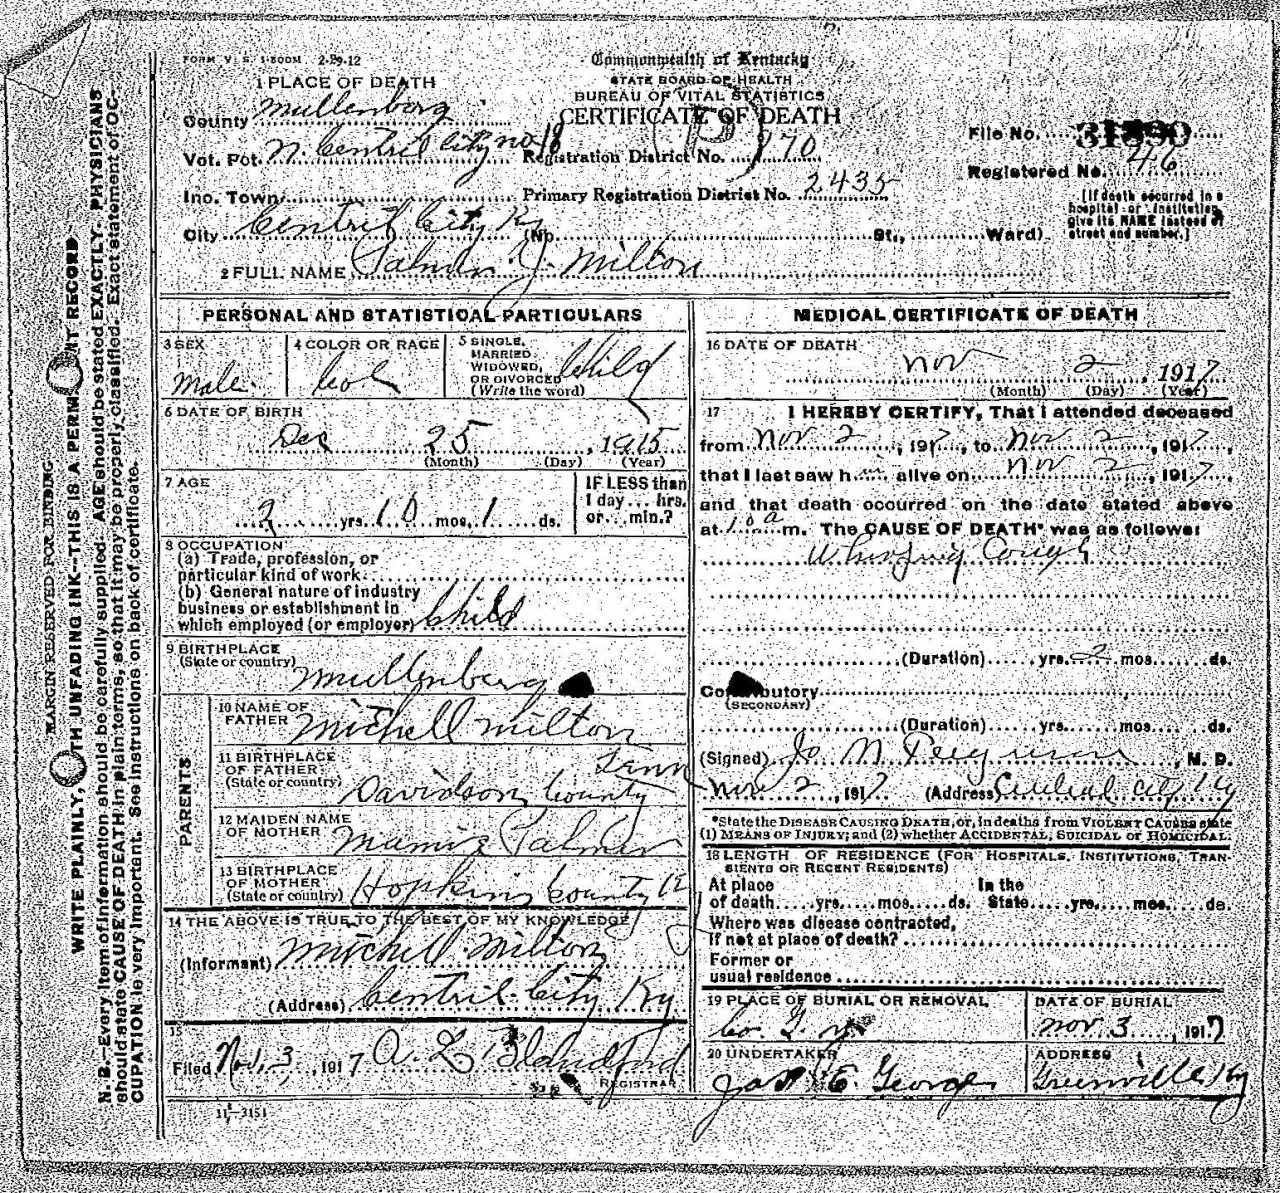 FORM V. S. 1-500M 2-29-12
Commonwealth of Kentucky
STATE BOARD OF HEALTH
BUREAU OF VITAL STATISTICS
CERTIFICATE OF DEATH
1 PLACE OF DEATH
County Mullenberg
Vot. Pct. N. Centril City no 18 Registration District No. 970
File No.
Registered No. 46
Inc. Town Primary Registration District No. 2435
City Centril City Ky No. St., Ward)
[If death occurred in a hospital or institution, give its NAME instead of street and number.]
2 FULL NAME Palmer J. Milton
PERSONAL AND STATISTICAL PARTICULARS
3 SEX male
4 COLOR OR RACE Col
5 SINGLE, MARRIED, WIDOWED, OR DIVORCED (Write the word) Child
6 DATE OF BIRTH
Dec 25, 1915
(Month) (Day) (Year)
7 AGE
2 yrs. 10 mos. 1 ds.
IF LESS than 1 day... hrs. or... min.?
8 OCCUPATION
(a) Trade, profession, or
particular kind of work
(b) General nature of industry
business or establishment in
which employed (or employer) Child
9 BIRTHPLACE
(State or country) Mullenberg
PARENTS
10 NAME OF FATHER Mitchell Milton
11 BIRTHPLACE OF FATHER (State or country) Davidson County Tenn
12 MAIDEN NAME OF MOTHER Mamie Palmer
13 BIRTHPLACE OF MOTHER (State or country) Hopkins County Ky
14 THE ABOVE IS TRUE TO THE BEST OF MY KNOWLEDGE
(Informant) Mitchell Milton
(Address) Centril City Ky
15
Filed Nov. 3, 1917 A. L. Blandford
REGISTRAR
11-3151
MEDICAL CERTIFICATE OF DEATH
16 DATE OF DEATH
Nov 2, 1917
(Month) (Day) (Year)
17 I HEREBY CERTIFY, That I attended deceased
from Nov 2, 1917, to Nov 2, 1917,
that I last saw him alive on Nov 2, 1917,
and that death occurred on the date stated above
at 10 a m. The CAUSE OF DEATH* was as follows:
Whooping Cough
(Duration) yrs. 2 mos. ds.
Contributory
(SECONDARY)
(Duration) yrs. mos. ds.
(Signed) Jo N Ferguson, M. D.
Nov 2, 1917 (Address) Central City Ky
*State the DISEASE CAUSING DEATH, or, in deaths from VIOLENT CAUSES state
(1) MEANS OF INJURY; and (2) whether ACCIDENTAL, SUICIDAL or HOMICIDAL.
18 LENGTH OF RESIDENCE (FOR HOSPITALS, INSTITUTIONS, TRAN-
SIENTS OR RECENT RESIDENTS)
At place In the
of death yrs. mos. ds. State yrs. mos. ds.
Where was disease contracted,
if not at place of death?
Former or
usual residence
19 PLACE OF BURIAL OR REMOVAL
Co. G. y
DATE OF BURIAL
Nov. 3, 1917
20 UNDERTAKER
Jas E. George
ADDRESS
Greenville Ky
MARGIN RESERVED FOR BINDING
WRITE PLAINLY, WITH UNFADING INK—THIS IS A PERMANENT RECORD
N. B.—Every item of information should be carefully supplied. AGE should be stated EXACTLY. PHYSICIANS
should state CAUSE OF DEATH in plain terms, so that it may be properly classified. Exact statement of OC-
CUPATION is very important. See instructions on back of certificate.